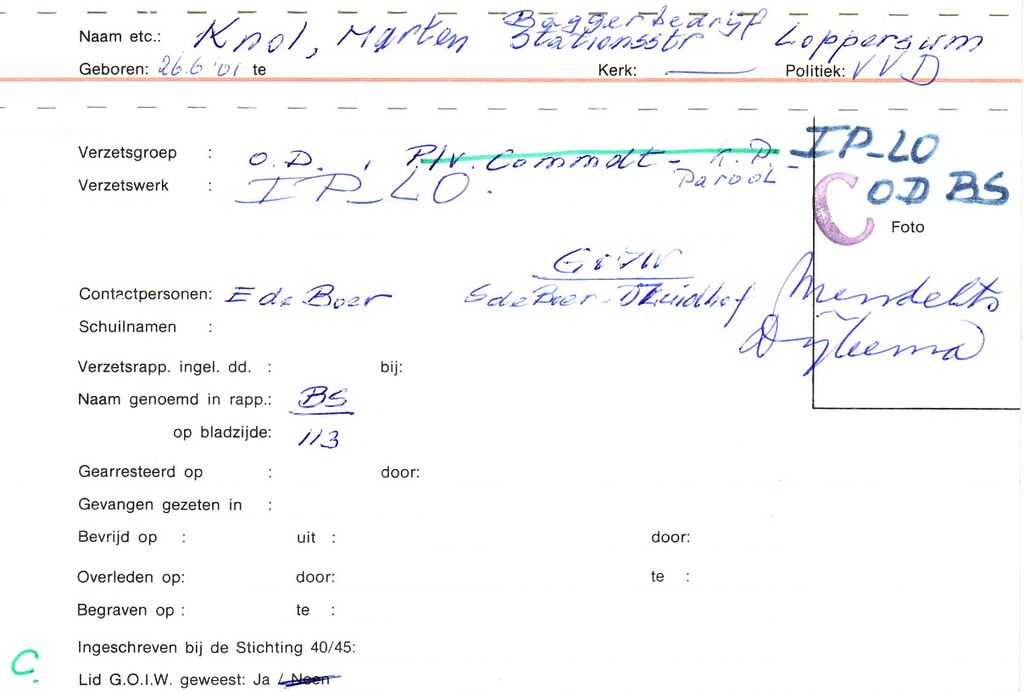 Baggerbedrijf
Naam etc.: Knol, Marten Stationsstr Loppersum
Geboren: 26.6 '01 te Kerk: —— Politiek: VVD
Verzetsgroep : O.D., P.lv. Commdt - K.P. - IP-LO
Parool
Verzetswerk : IP-LO. C OD BS
Foto
GOIW
Contactpersonen: E de Boer S de Boer - Zuidhof Mendelts
Schuilnamen : Dijkema
Verzetsrapp. ingel. dd. : bij:
Naam genoemd in rapp.: BS
op bladzijde: 113
Gearresteerd op : door:
Gevangen gezeten in :
Bevrijd op : uit : door:
Overleden op: door: te :
Begraven op : te :
Ingeschreven bij de Stichting 40/45:
C. Lid G.O.I.W. geweest: Ja / Neen